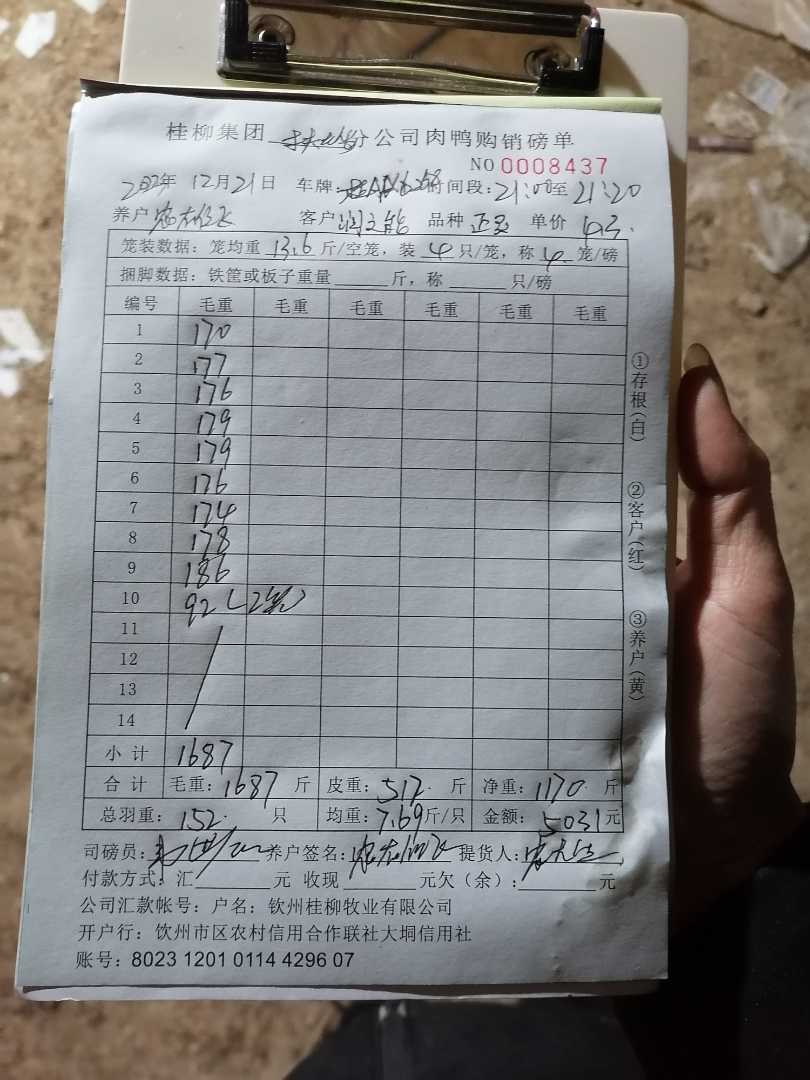 桂柳集团 分公司肉鸭购销磅单
NO 0008437
年 12月21日 车牌: 时间段:21:00至21:20
养户 客户 品种 单价 4.3
笼装数据:笼均重 13.6 斤/空笼,装 4 只/笼,称 4 笼/磅
捆脚数据:铁筐或板子重量 斤,称 只/磅
编号 毛重 毛重 毛重 毛重 毛重 毛重
1 170
2 177
3 176
4 179
5 179
6 176
7 174
8 178
9 186
10 92(2笼)
11
12
13
14
小计 1687
合计 毛重:1687 斤 皮重:517 斤 净重:1170 斤
总羽重:152 只 均重:7.69斤/只 金额:5031元
司磅员: 养户签名: 提货人:
付款方式:汇 元 收现 元欠(余): 元
公司汇款帐号:户名:钦州桂柳牧业有限公司
开户行:钦州市区农村信用合作联社大垌信用社
账号:8023 1201 0114 4296 07
①存根(白)
②客户(红)
③养户(黄)